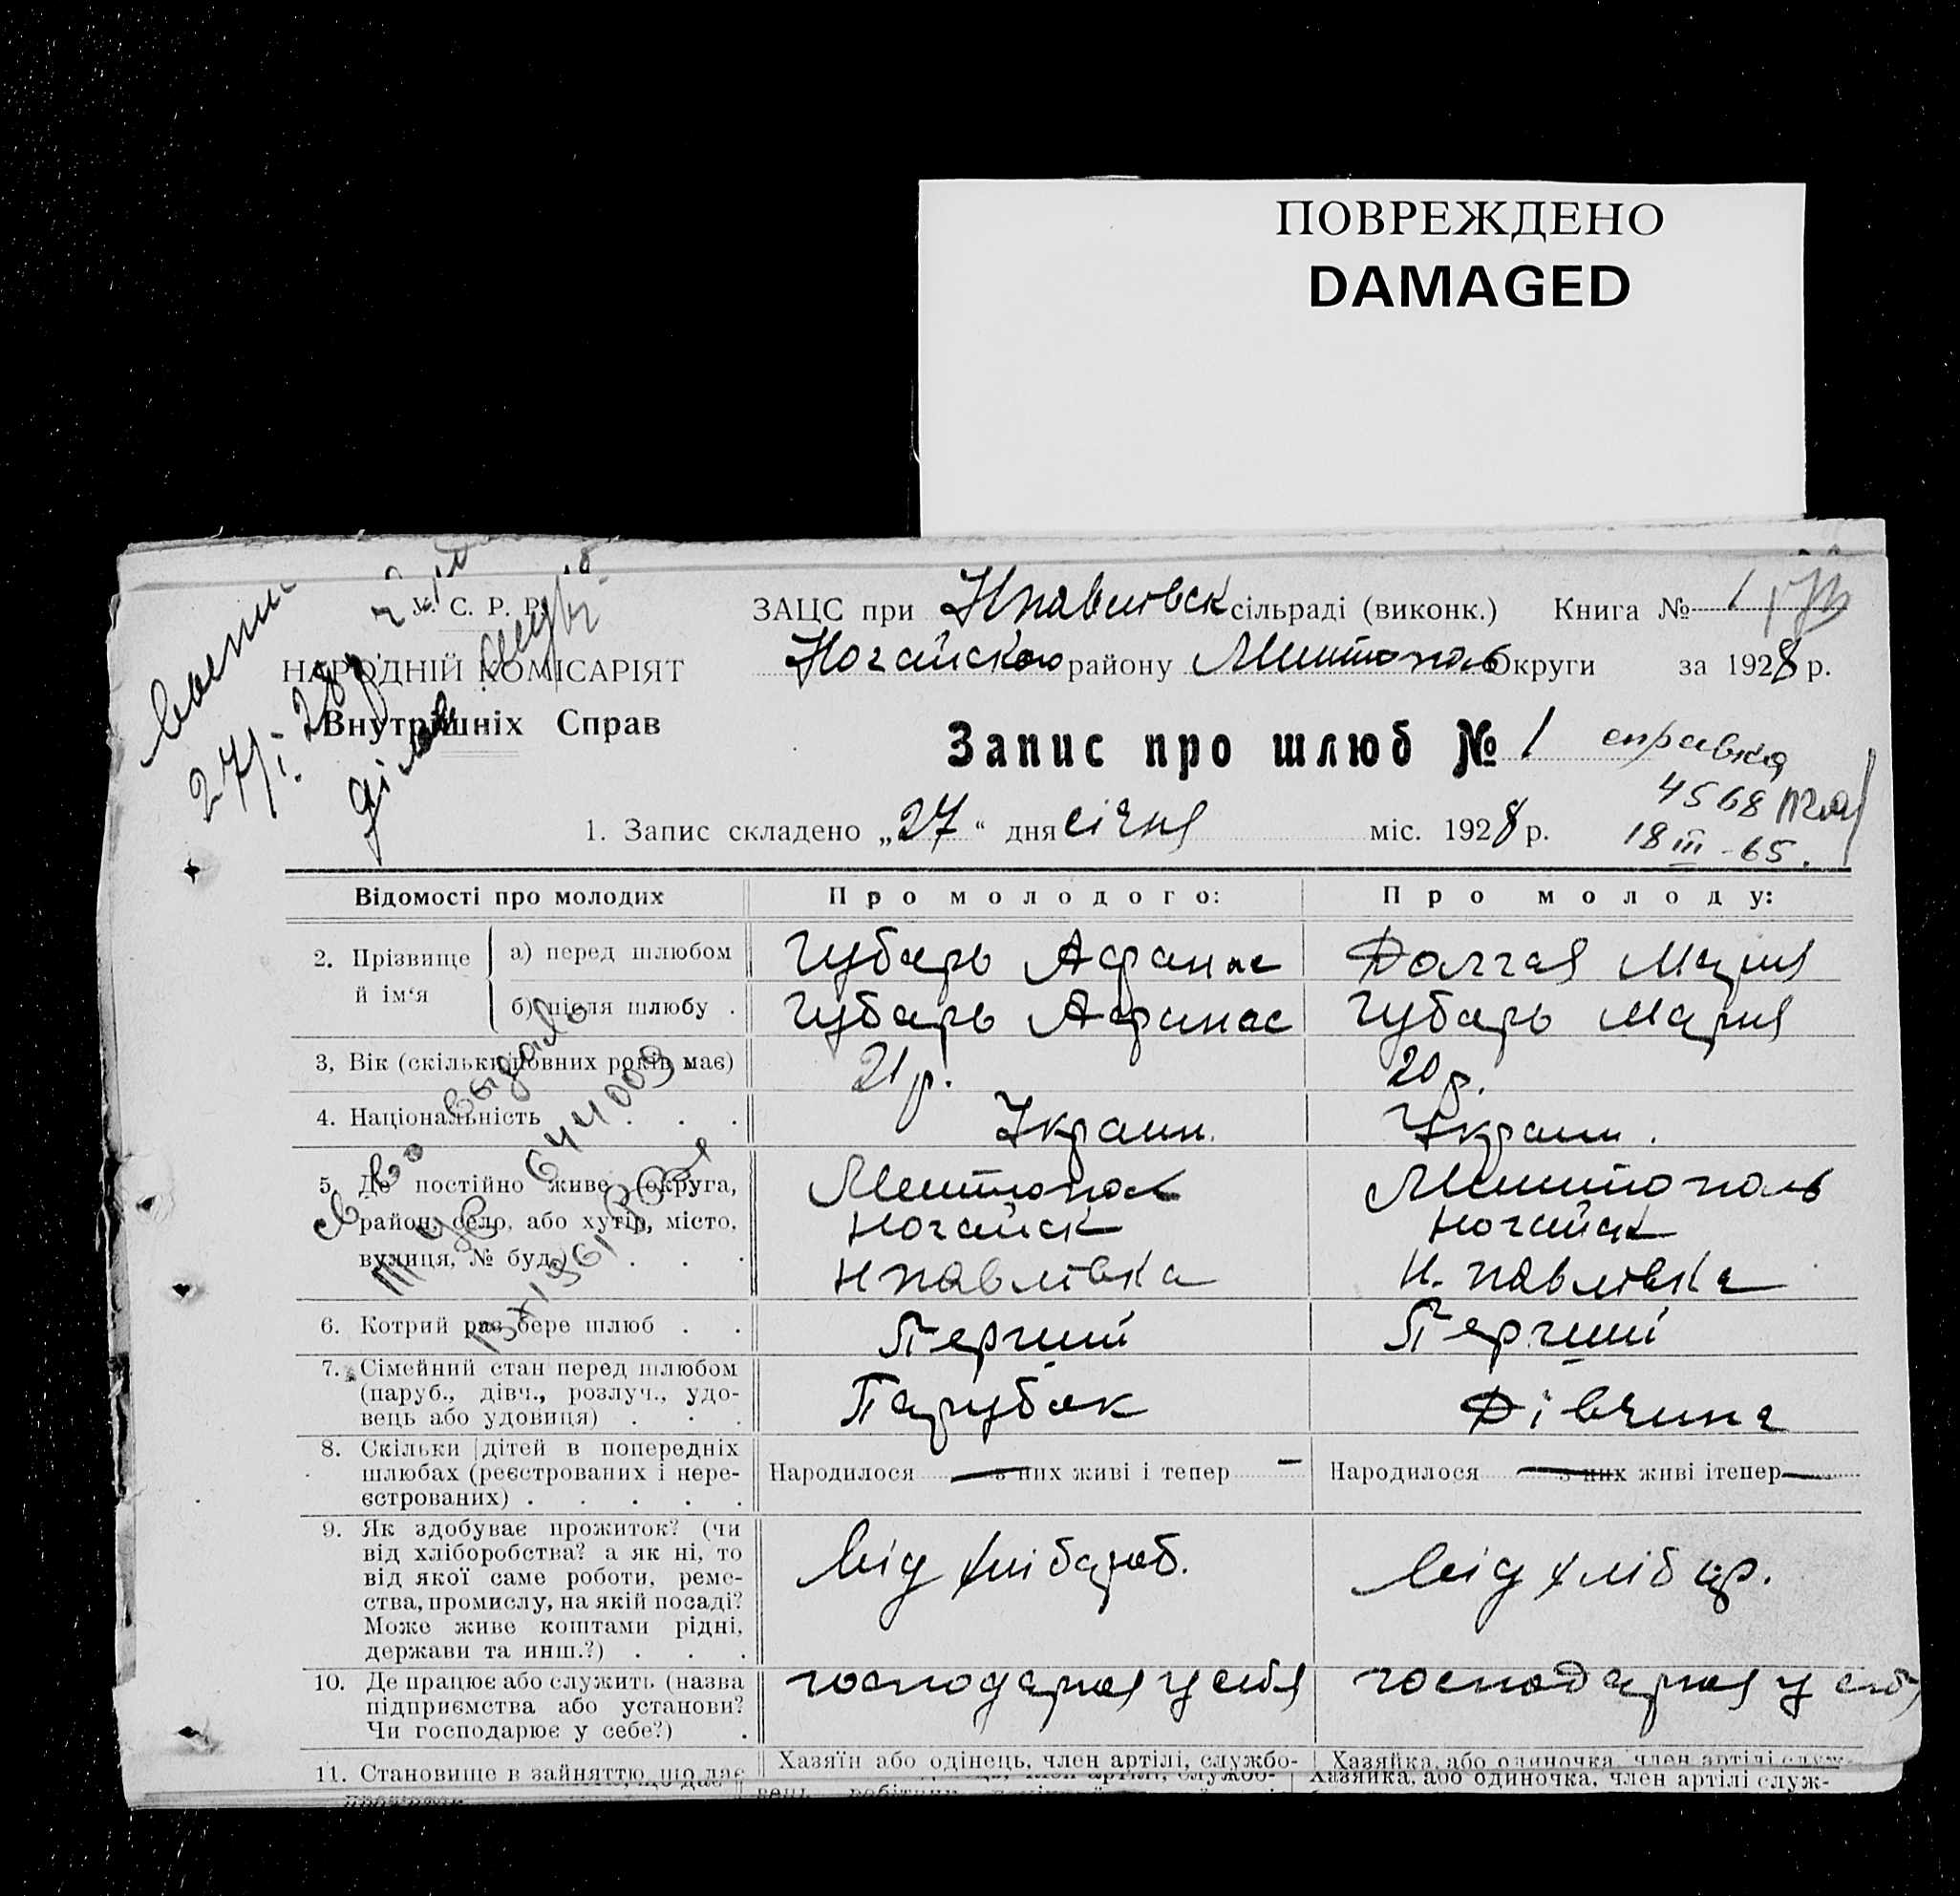 ПОВРЕЖДЕНО
DAMAGED
У. С. Р. Р.
НАРОДНІЙ КОМІСАРІЯТ
Внутрішніх Справ
ЗАЦС при Нпавловск сільраді (виконк.) Книга № 1
Ногайского району Мелитополь Округи за 1928 р.
Запис про шлюб № 1
справка
4568
18 III - 65.
27/I. 28р.
1. Запис складено „27“ дня січня міс. 1928 р.
Відомості про молодих
Про молодого:
Про молоду:
2. Прізвище й ім‘я
а) перед шлюбом
Губарь Афанас
Долгая Мария
б) після шлюбу .
Губарь Афанас
Губарь Мария
3, Вік (скільки повних років має)
21 р.
20 р.
4. Національність . . .
Украин.
Украин.
5. Де постійно живе (округа,
район, село, або хутір, місто,
вулиця, № буд.) . . .
Мелитопол
Ногайск
Нпавлівка
Мелитополь
Ногайск
Н. павлівка
6. Котрий раз бере шлюб . .
Перший
Перший
7. Сімейний стан перед шлюбом
(паруб., дівч., розлуч., удо-
вець або удовиця) . . .
Парубок
Дівчина
8. Скільки дітей в попередніх
шлюбах (реєстрованих і нере-
єстрованих) . . . . .
Народилося — з них живі і тепер —
Народилося — з них живі ітепер —
9. Як здобуває прожиток? (чи
від хліборобства? а як ні, то
від якої саме роботи, реме-
ства, промислу, на якій посаді?
Може живе коштами рідні,
держави та инш.?) . . .
Від хлібароб.
Від хлібар.
10. Де працює або служить (назва
підприємства або установи?
Чи господарює у себе?) .
господарюя у себя
господарюя у себя
11. Становище в зайняттю, що дає
Хазяїн або одінець, член артілі, службо-
Хазяйка, або одиночка, член артілі служ-
Хазяйка, або одиночка, член артілі служ-